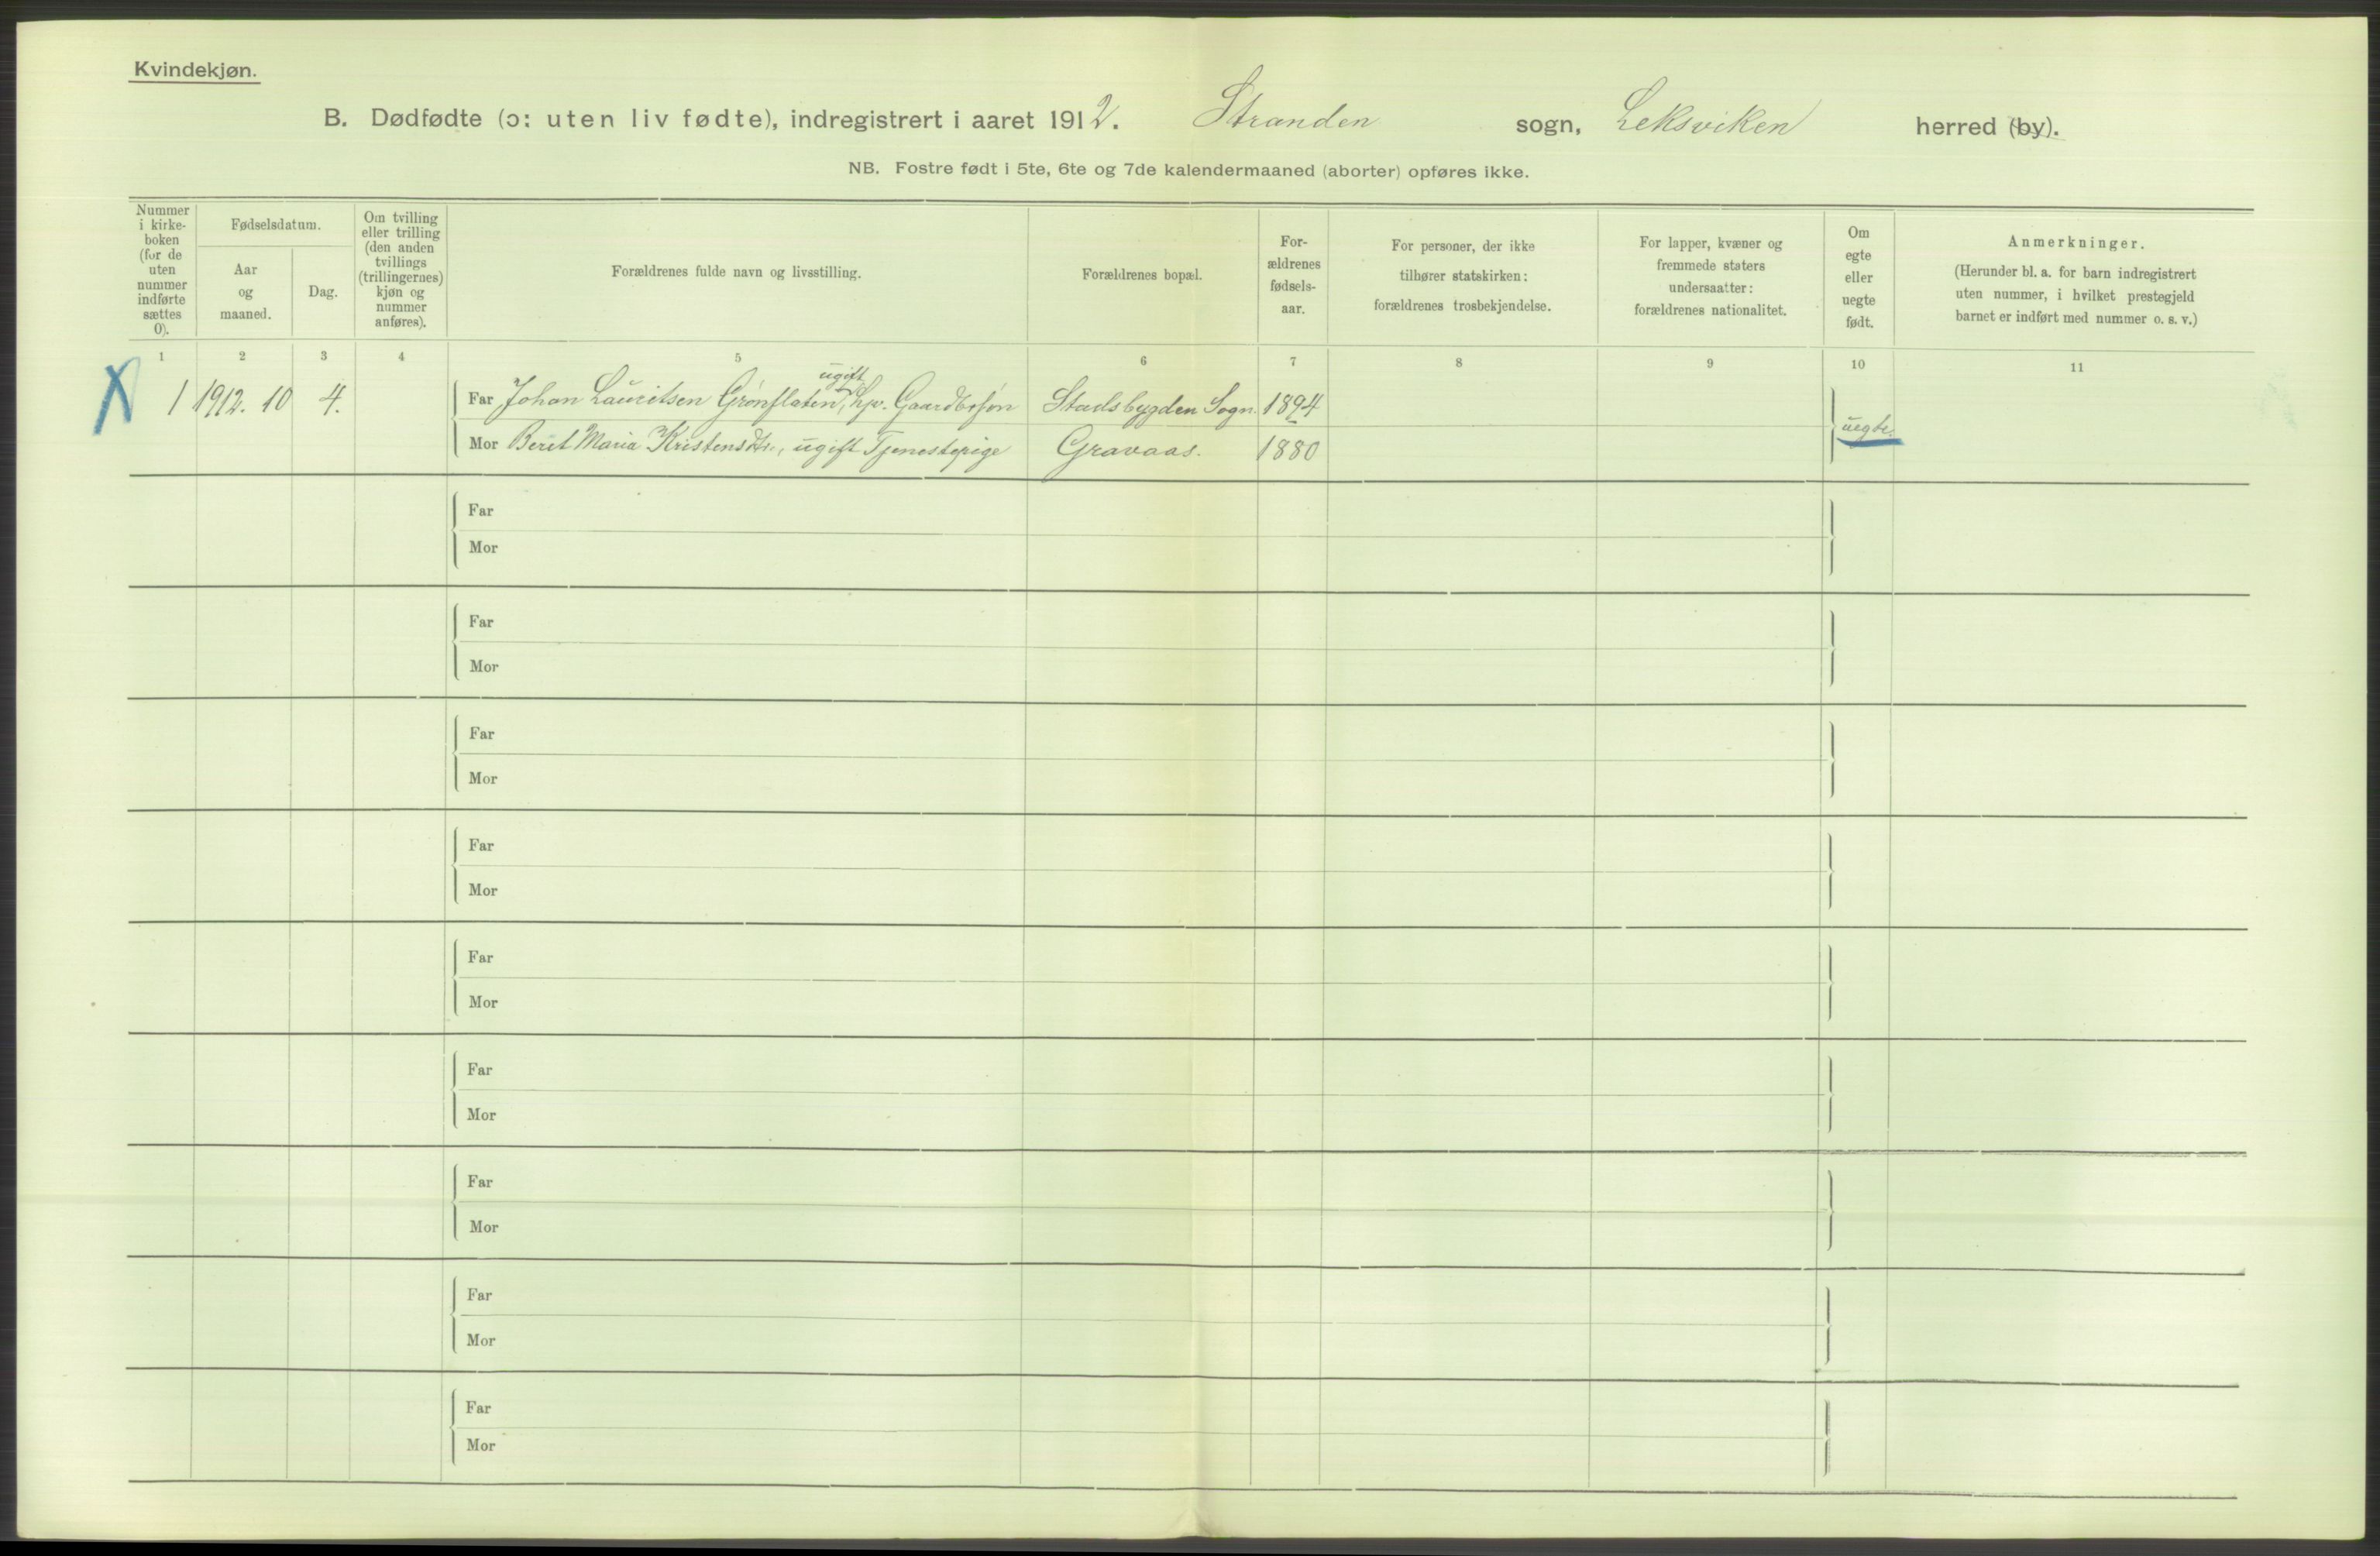 Kvindekjøn.
B. Dødfødte (ɔ: uten liv fødte), indregistrert i aaret 1912. Stranden sogn, Leksviken herred (by).
NB. Fostre født i 5te, 6te og 7de kalendermaaned (aborter) opføres ikke.
Nummer
i kirke-
boken
(for de
uten
nummer
indførte
sættes
0).
Fødselsdatum.
Aar
og
maaned.
Dag.
Om tvilling
eller trilling
(den anden
tvillings
(trillingernes)
kjøn og
nummer
anføres).
Forældrenes fulde navn og livsstilling.
Forældrenes bopæl.
For-
ældrenes
fødsels-
aar.
For personer, der ikke
tilhører statskirken:
forældrenes trosbekjendelse.
For lapper, kvæner og
fremmede staters
undersaatter:
forældrenes nationalitet.
Om
egte
eller
uegte
født.
Anmerkninger.
(Herunder bl. a. for barn indregistrert
uten nummer, i hvilket prestegjeld
barnet er indført med nummer o. s. v.)
1 2 3 4 5 6 7 8 9 10 11
ugift
1 1912. 10 4. Far Johan Lauritsen Grønflaten, Gaardbrsøn Stadsbygden Sogn. 1894
uegte.
Mor Beret Maria Kristensdtr., ugift Tjenestepige Gravaas. 1880
Far
Mor
Far
Mor
Far
Mor
Far
Mor
Far
Mor
Far
Mor
Far
Mor
Far
Mor
Far
Mor